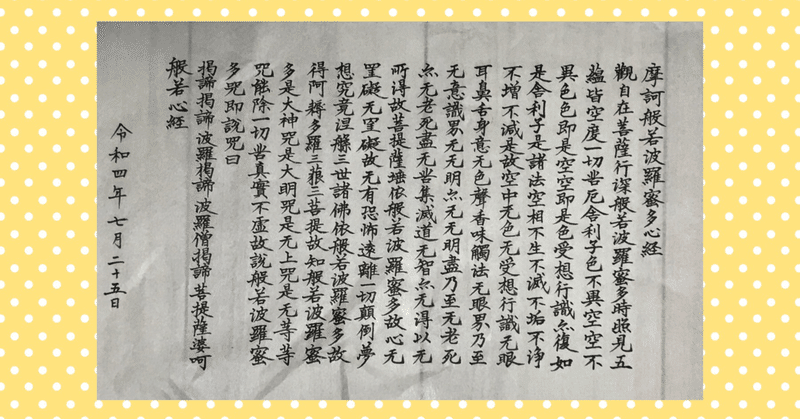 摩訶般若波羅蜜多心經
觀自在菩薩行深般若波羅蜜多時照見五
蘊皆空度一切苦厄舎利子色不異空空不
異色色即是空空即是色受想行識亦復如
是舎利子是諸法空相不生不滅不垢不浄
不増不減是故空中无色无受想行識无眼
耳鼻舌身意无色聲香味觸法无眼界乃至
无意識界无无明亦无无明盡乃至无老死
亦无老死盡无苦集滅道无智亦无得以无
所得故菩提薩埵依般若波羅蜜多故心无
罣礙无罣礙故无有恐怖遠離一切顛倒夢
想究竟涅槃三世諸佛依般若波羅蜜多故
得阿耨多羅三藐三菩提故知般若波羅蜜
多是大神咒是大明咒是无上咒是无等等
咒能除一切苦真實不虚故説般若波羅蜜
多咒即説咒曰
揭諦揭諦波羅揭諦波羅僧揭諦菩提薩婆呵
般若心經
令和四年七月二十五日